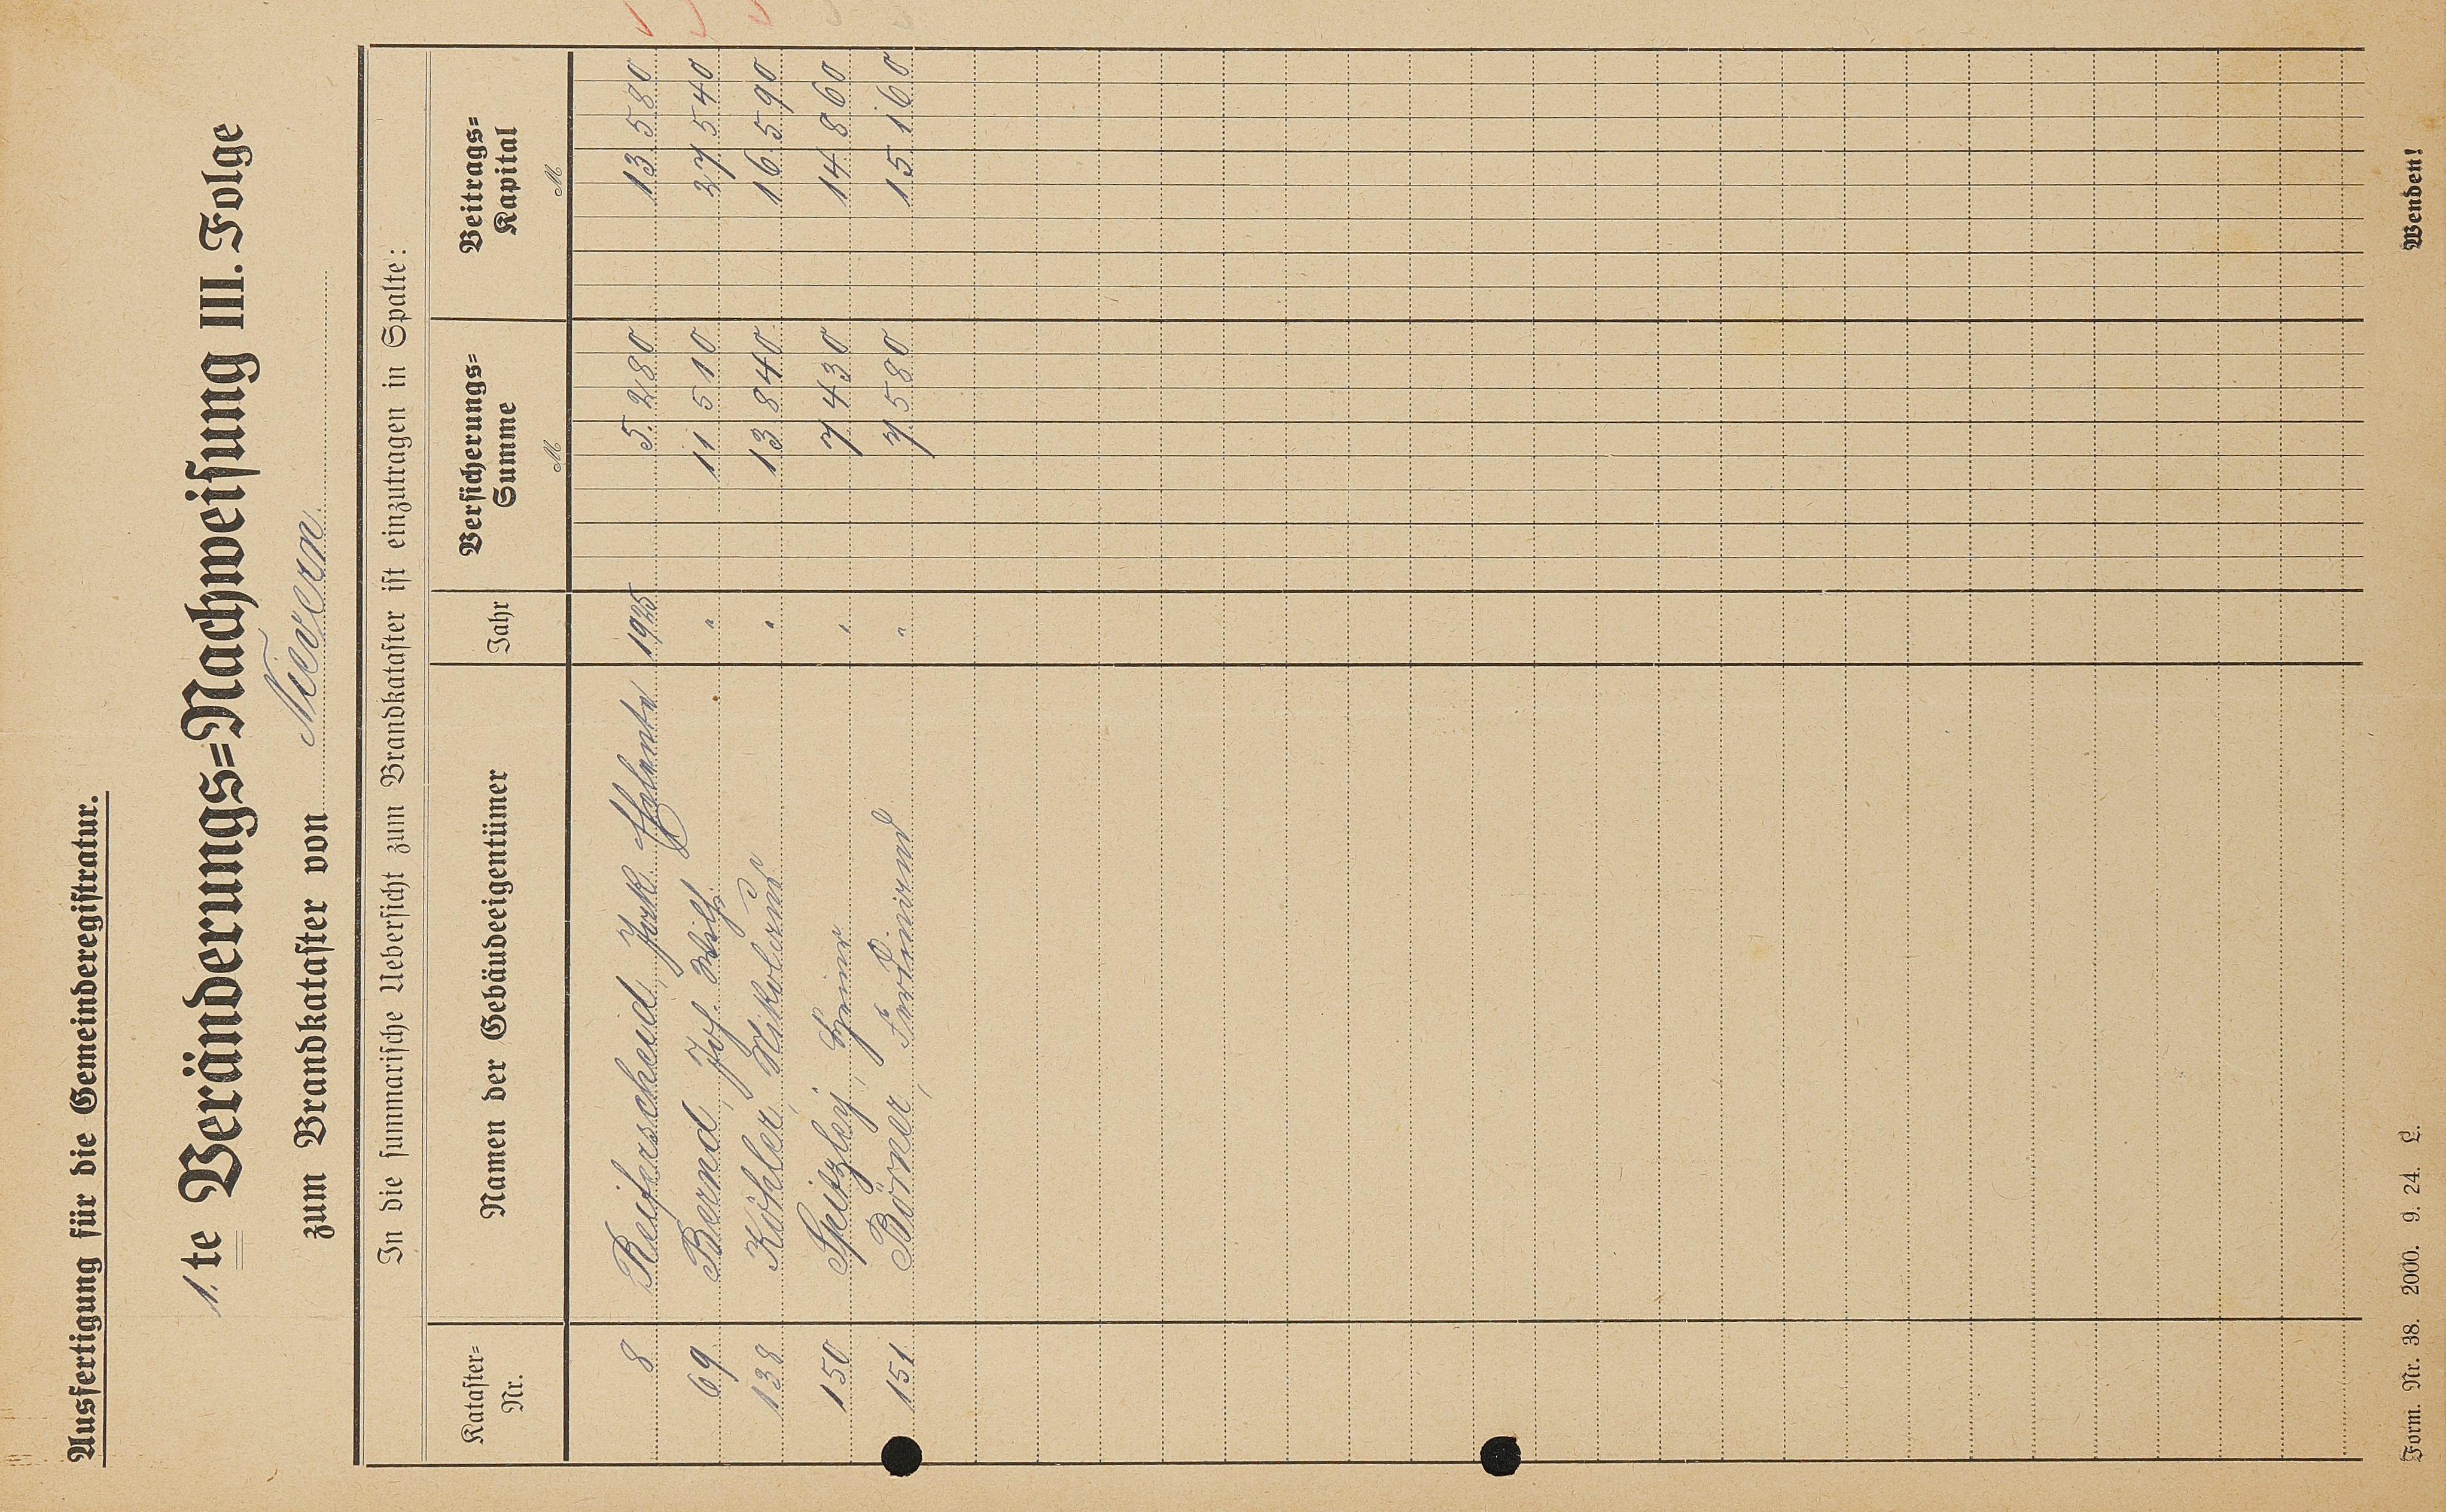 Ausfertigung für die Gemeinderegistratur.
1. te Veränderungs=Nachweisung III. Folge
zum Brandkataster von Nievern
In die summarische Uebersicht zum Brandkataster ist einzutragen in Spalte:
Kataster=Nr. Namen der Gebäudeeigentümer Jahr Versicherungs=Summe Beitrags=Kapital
M M
8 Reiferscheid, Jakb. 1925 5 280 13 580
69 Bernd, Jos. Wilh. " 11 510 27 540
138 Köhler, " 13 840 16 590
150 Spitzley, " 7 430 14 860
151 Börner, Ferdinand " 7 580 15 160
Form. Nr. 38. 2000. 9. 24. L.
Wenden!